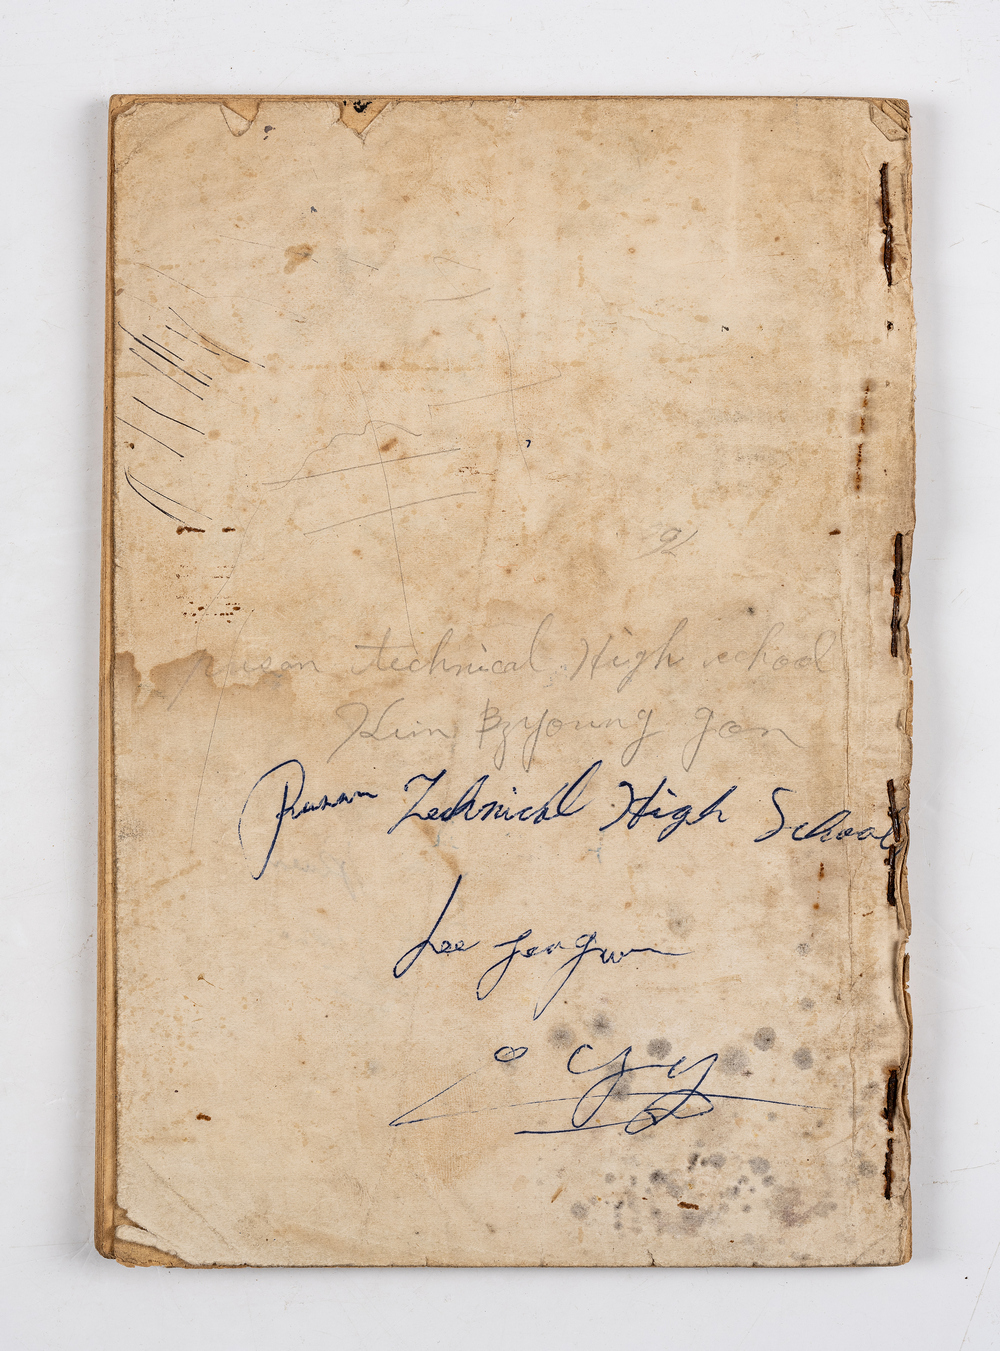 pusan technical High school
Kim Byoung gon
Pusan Technical High School
Lee